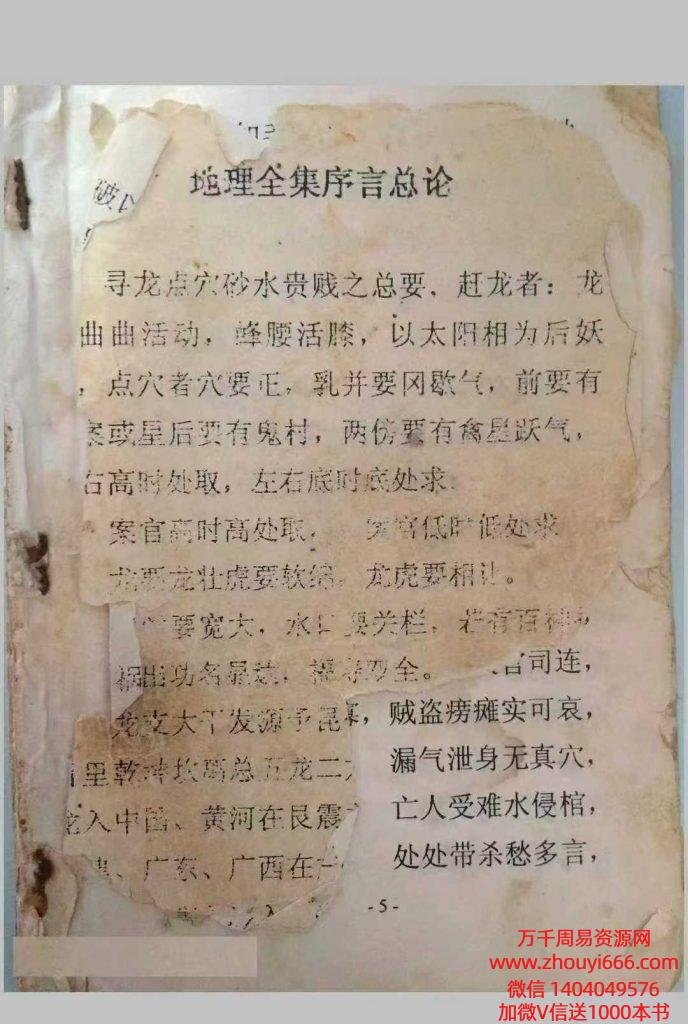 破
地理全集序言总论
寻龙点穴砂水贵贱之总要，赶龙者：龙
曲曲活动，蜂腰活膝，以太阳相为后妖
，点穴者穴要正，乳并要冈歇气，前要有
案或星后要有鬼村，两傍要有禽星跃气，
右高时处取，左右底时底处求
案官高时高处取， 案官低时低处求
龙要龙壮虎要软绵，龙虎要相让。
要宽大，水口要关栏，若有百
出功名显达，福寿双全。 官司连，
龙支大干发源于昆 ，贼盗痨瘫实可哀，
里乾坤坎离总五龙二 漏气泄身无真穴，
龙入中国、黄河在艮震 亡人受难水侵棺，
、广东、广西在 处处带杀愁多言，
入
-5-
万千周易资源网
www.zhouyi666.com
微信 1404049576
加微V信送1000本书